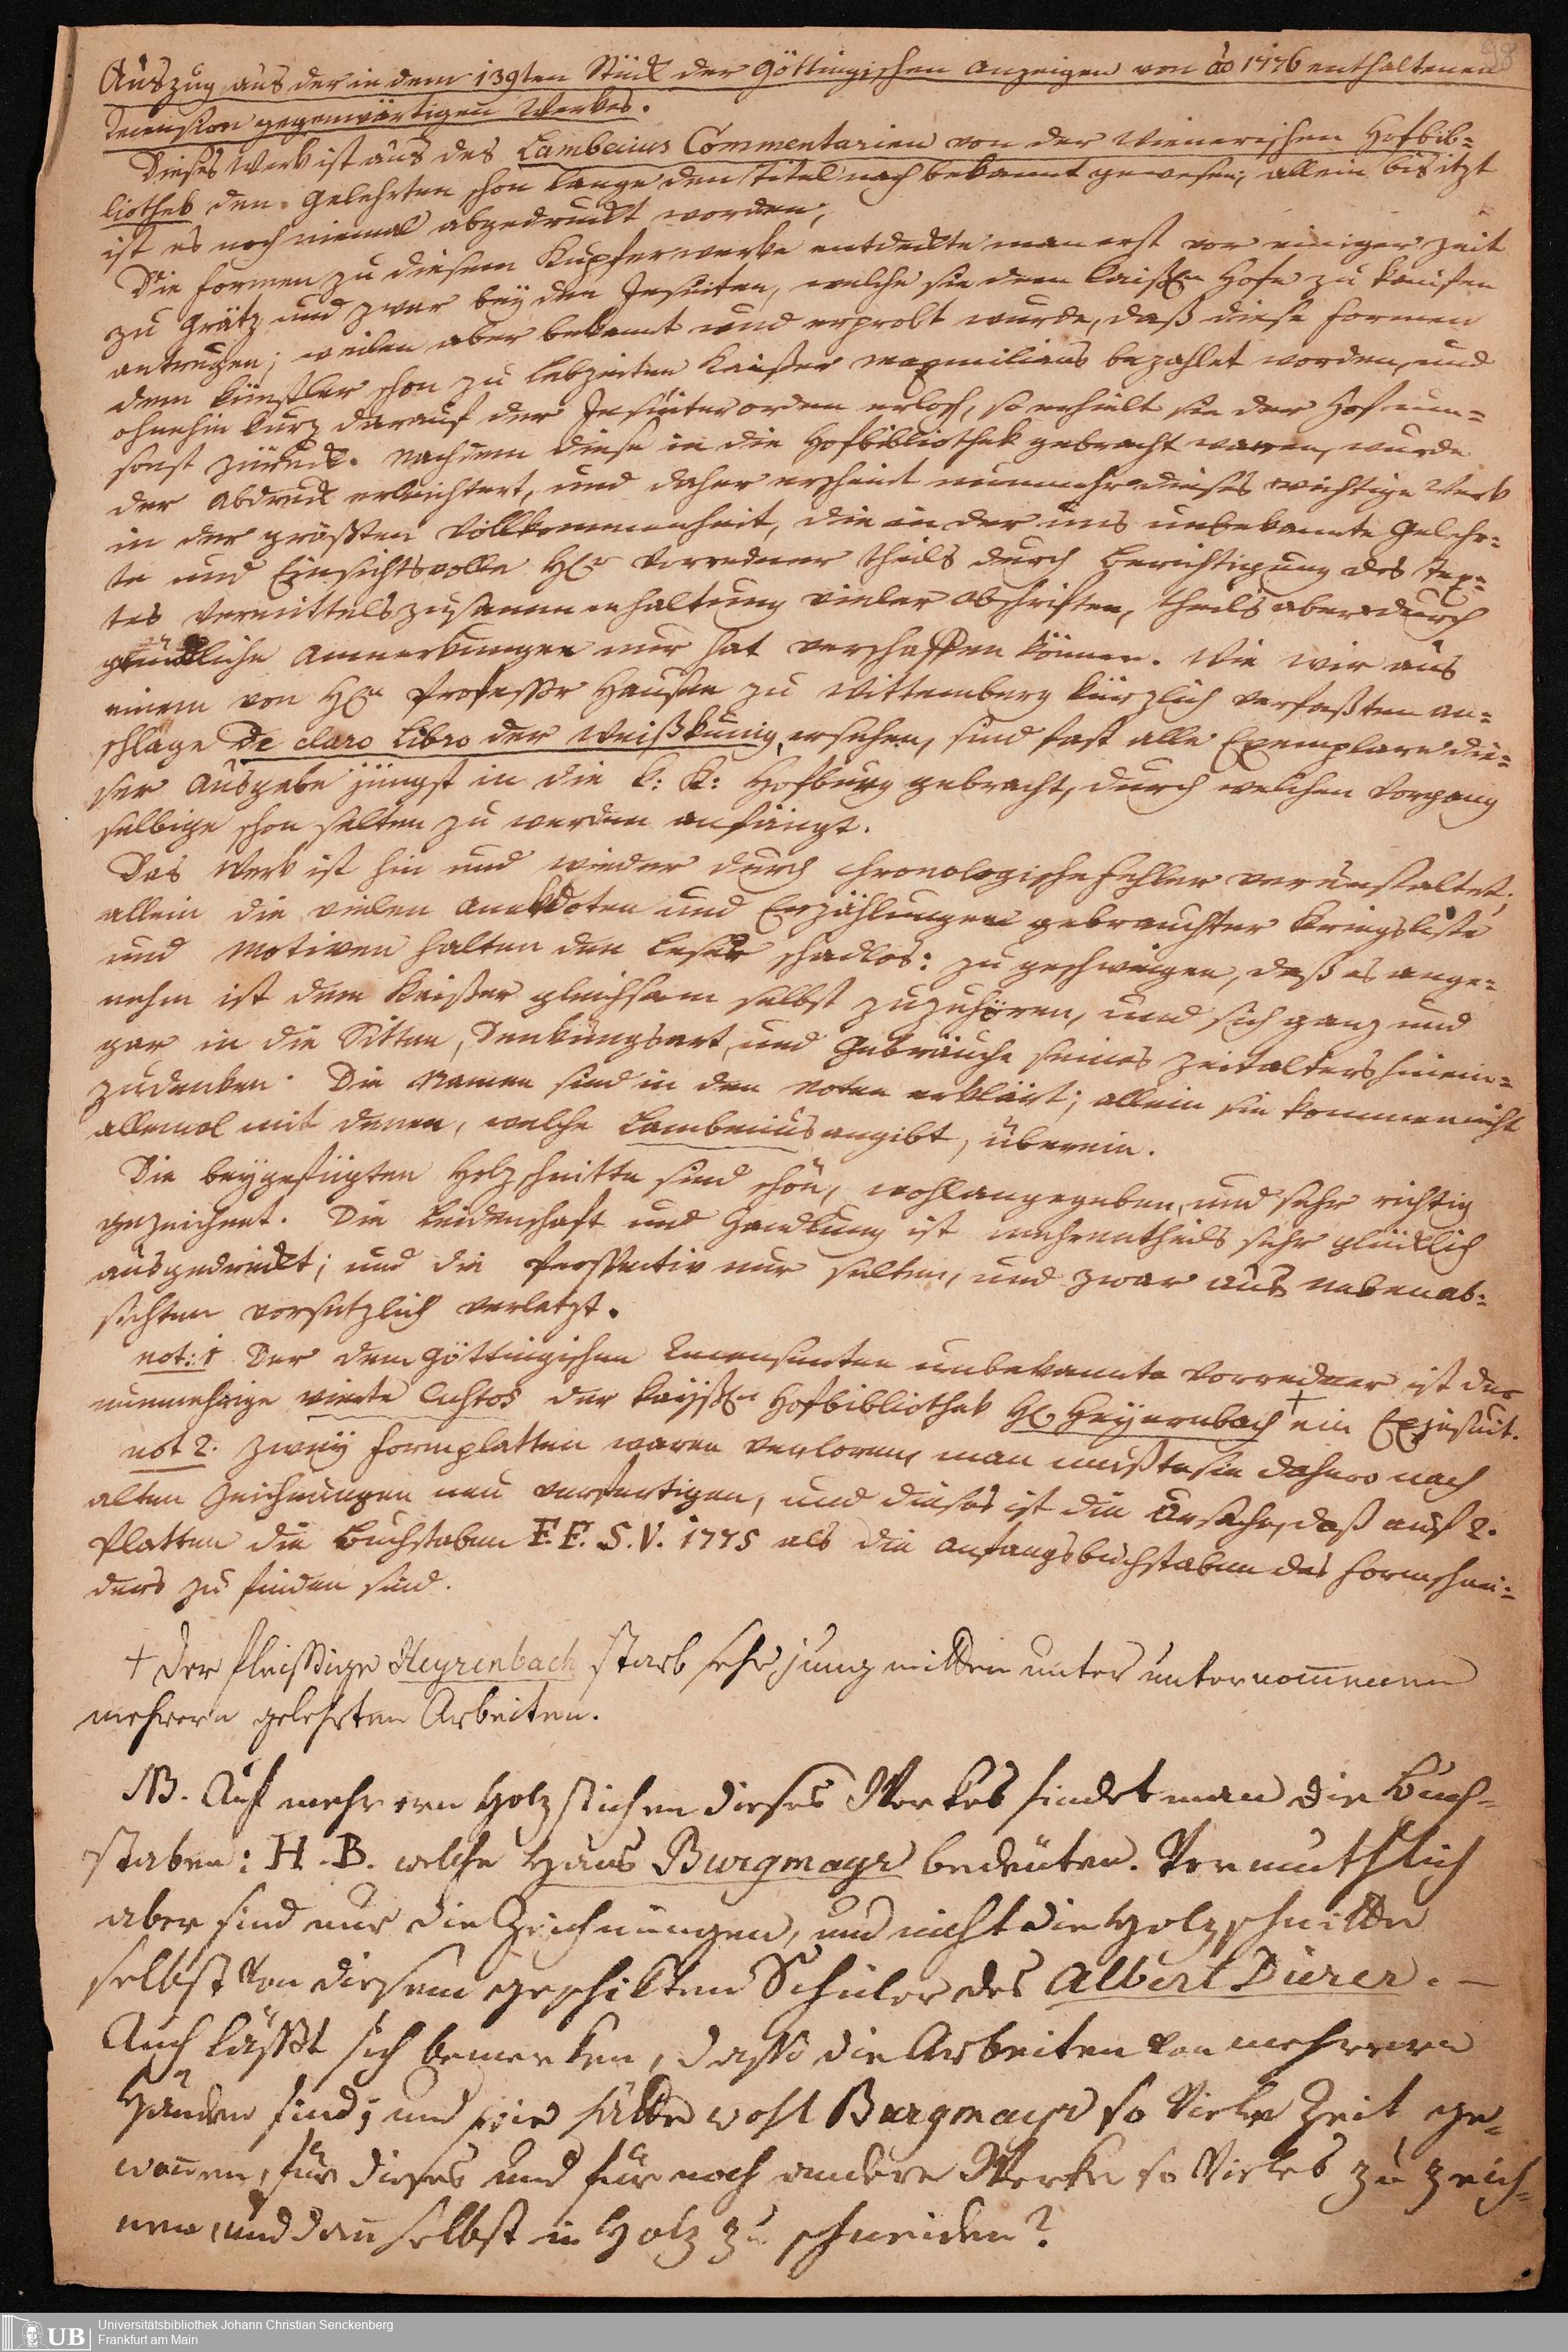 Auszug aus der in dem 139ten Stück der Göttingischen Anzeigen von ao 1776 enthaltenen
Recension gegenwärtigen Werkes.
Dieses Werk ist aus des Lambecius Commentarien von der Wienerischen Hofbib=
liothek den Gelehrten schon lange dem Titel nach bekannt gewesen; allein bis itzt
ist es noch niemal abgedruckt worden,
Die Formen zu diesem Kupferwerke entdeckte man erst vor einiger Zeit
zu Grätz und zwar bey den Jesuiten, welche sie dem Kaißen Hofe zu kaufen
antrugen; weilen aber bekannt und erprobt wurde, daß diese Formen
dem Künstler schon zu Lebzeiten Kaiser Maxmilians bezahlet worden, und
ohnehin kurz darauf der Jesuiterorden erlosch, so erhielt sie der Hof um=
sonst zürück. Nachdem diese in die Hofbibliothek gebracht waren, wurde
der Abdruck erleichtert, und daher erscheint nunmehr dieses wichtige Werk
in der größten Vollkommenheit, die in der uns unbekannte Gelehr=
te und Einsichtsvolle Hr Vorredner theils durch Berichtigung des Tex=
tes vermittels zusammenhaltung vieler Abschriften, theils aber durch
gründliche Anmerkungen nur hat verschaffen können. Wie wir aus
einem von Hn Professor Hausen zu Wittemberg kürzlich verfaßten An=
schlage De claro Libro der Weißkunig, ersehen, sind fast alle Exemplare die=
ser Ausgabe jüngst in die k: k: Hofburg gebracht, durch welchen Vorgang
selbige schon selten zu werden anfängt.
Das Werk ist hin und wieder durch chronologische Fehler verunstaltet;
allein die vielen Anekdoten und Erzählungen gebrauchter Kriegsliste
und Motiven halten den Leser schadlos: zu geschweigen, daß es ange=
nehm ist dem Kaißer gleichsam selbst zuzuhören, und sich ganz und
gar in die Sitten, Denkungsart, und Gebräuche seines Zeitalters hinein=
zudenken. Die Namen sind in den Noten erklärt; allein sie kommen nicht
allemal mit denen, welche Lambecius angibt, überein.
Die beygefügten Holzschnitte sind schön, wohlangegeben, und sehr richtig
gezeichnet. Die Leidenschaft und Handlung ist mehrentheils sehr glücklich
ausgedrückt; und die Perspectiv nur selten, und zwar aus Nebenab=
sichten vorsetzlich verletzt.
not: 1 Der dem Göttingischen Recensenten unbekannte Vorredner ist der
nunmehrige vierte Custos der Kayßn Hofbibliothek Hr Heyrenbach + ein Exjesuit.
not 2. Zwey Formplatten waren verloren, man mußte sie dahero nach
alten Zeichnungen neu verfertigen, und dieses ist die Ursache, daß auf 2.
Platten die Buchstaben F. F. S. V. 1775 als die Anfangsbuchstaben des Formschnei=
ders zu finden sind.
+ Der fleissige Heyrenbach starb sehr jung mitten unter unternom̄enen
mehrern gelehrten Arbeiten.
NB. Auf mehrern Holzstichen dieses Werkes findet man die Buch=
staben: H. B. welche Hans Burgmayr bedeuten. Vermuthlich
aber sind nur die Zeichnungen, und nicht die Holzschnitte
selbst von diesem geschikten Schüler des Albert Dürer. —
Auch lässt sich bemerken, dass die Arbeiten von mehrern
Händen sind; und wie hätte wohl Burgmayr so viele Zeit ge=
won̄en, für dieses und für noch andere Werke so Vieles zu zeich=
nen, und dan̄ selbst in Holz zu schneiden?
UB Universitätsbibliothek Johann Christian Senckenberg
Frankfurt am Main